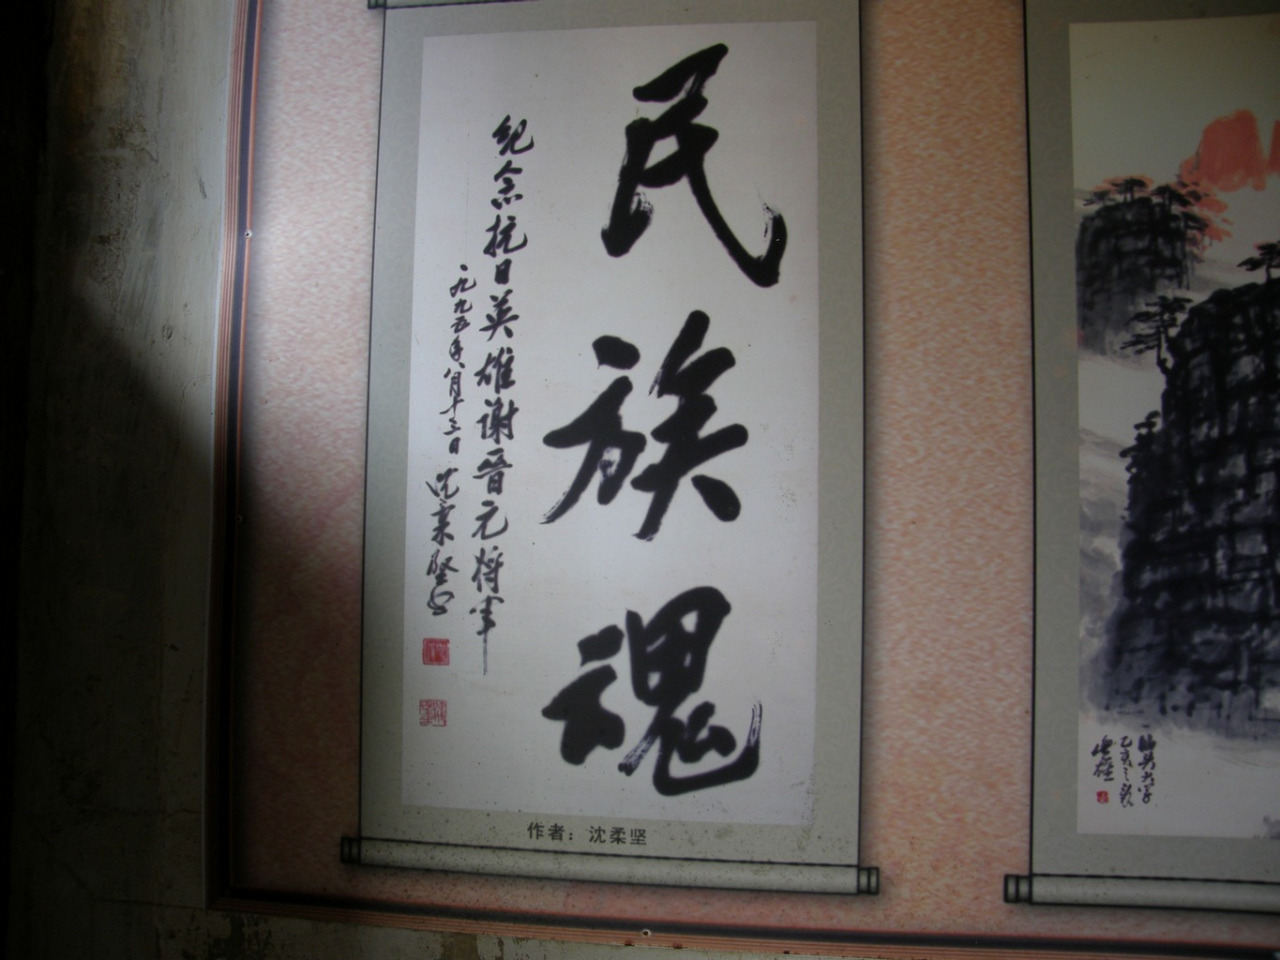 民族魂
纪念抗日英雄谢晋元将军
一九九五年八月十三日 沈柔坚书
作者：沈柔坚